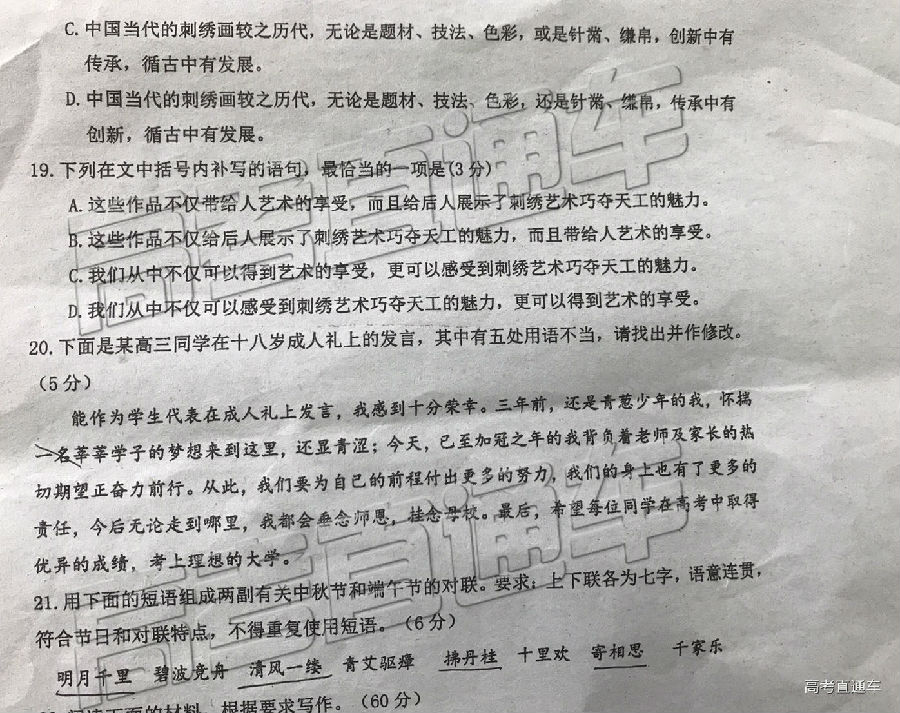 C. 中国当代的刺绣画较之历代，无论是题材、技法、色彩，或是针黹、缣帛，创新中有
传承，循古中有发展。
D. 中国当代的刺绣画较之历代，无论是题材、技法、色彩，还是针黹、缣帛，传承中有
创新，循古中有发展。
19. 下列在文中括号内补写的语句，最恰当的一项是(3分)
A. 这些作品不仅带给人艺术的享受，而且给后人展示了刺绣艺术巧夺天工的魅力。
B. 这些作品不仅给后人展示了刺绣艺术巧夺天工的魅力，而且带给人艺术的享受。
C. 我们从中不仅可以得到艺术的享受，更可以感受到刺绣艺术巧夺天工的魅力。
D. 我们从中不仅可以感受到刺绣艺术巧夺天工的魅力，更可以得到艺术的享受。
20. 下面是某高三同学在十八岁成人礼上的发言，其中有五处用语不当，请找出并作修改。
（5分）
能作为学生代表在成人礼上发言，我感到十分荣幸。三年前，还是青葱少年的我，怀揣
一名莘莘学子的梦想来到这里，还显青涩；今天，已至加冠之年的我背负着老师及家长的热
切期望正奋力前行。从此，我们要为自己的前程付出更多的努力，我们的身上也有了更多的
责任，今后无论走到哪里，我都会垂念师恩，挂念母校。最后，希望每位同学在高考中取得
优异的成绩，考上理想的大学。
21. 用下面的短语组成两副有关中秋节和端午节的对联。要求：上下联各为七字，语意连贯，
符合节日和对联特点，不得重复使用短语。（6分）
明月千里 碧波竞舟 清风一缕 青艾驱瘴 拂丹桂 十里欢 寄相思 千家乐
阅读下面的材料，根据要求写作。（60分）
高考直通车
高考直通车
高考直通车